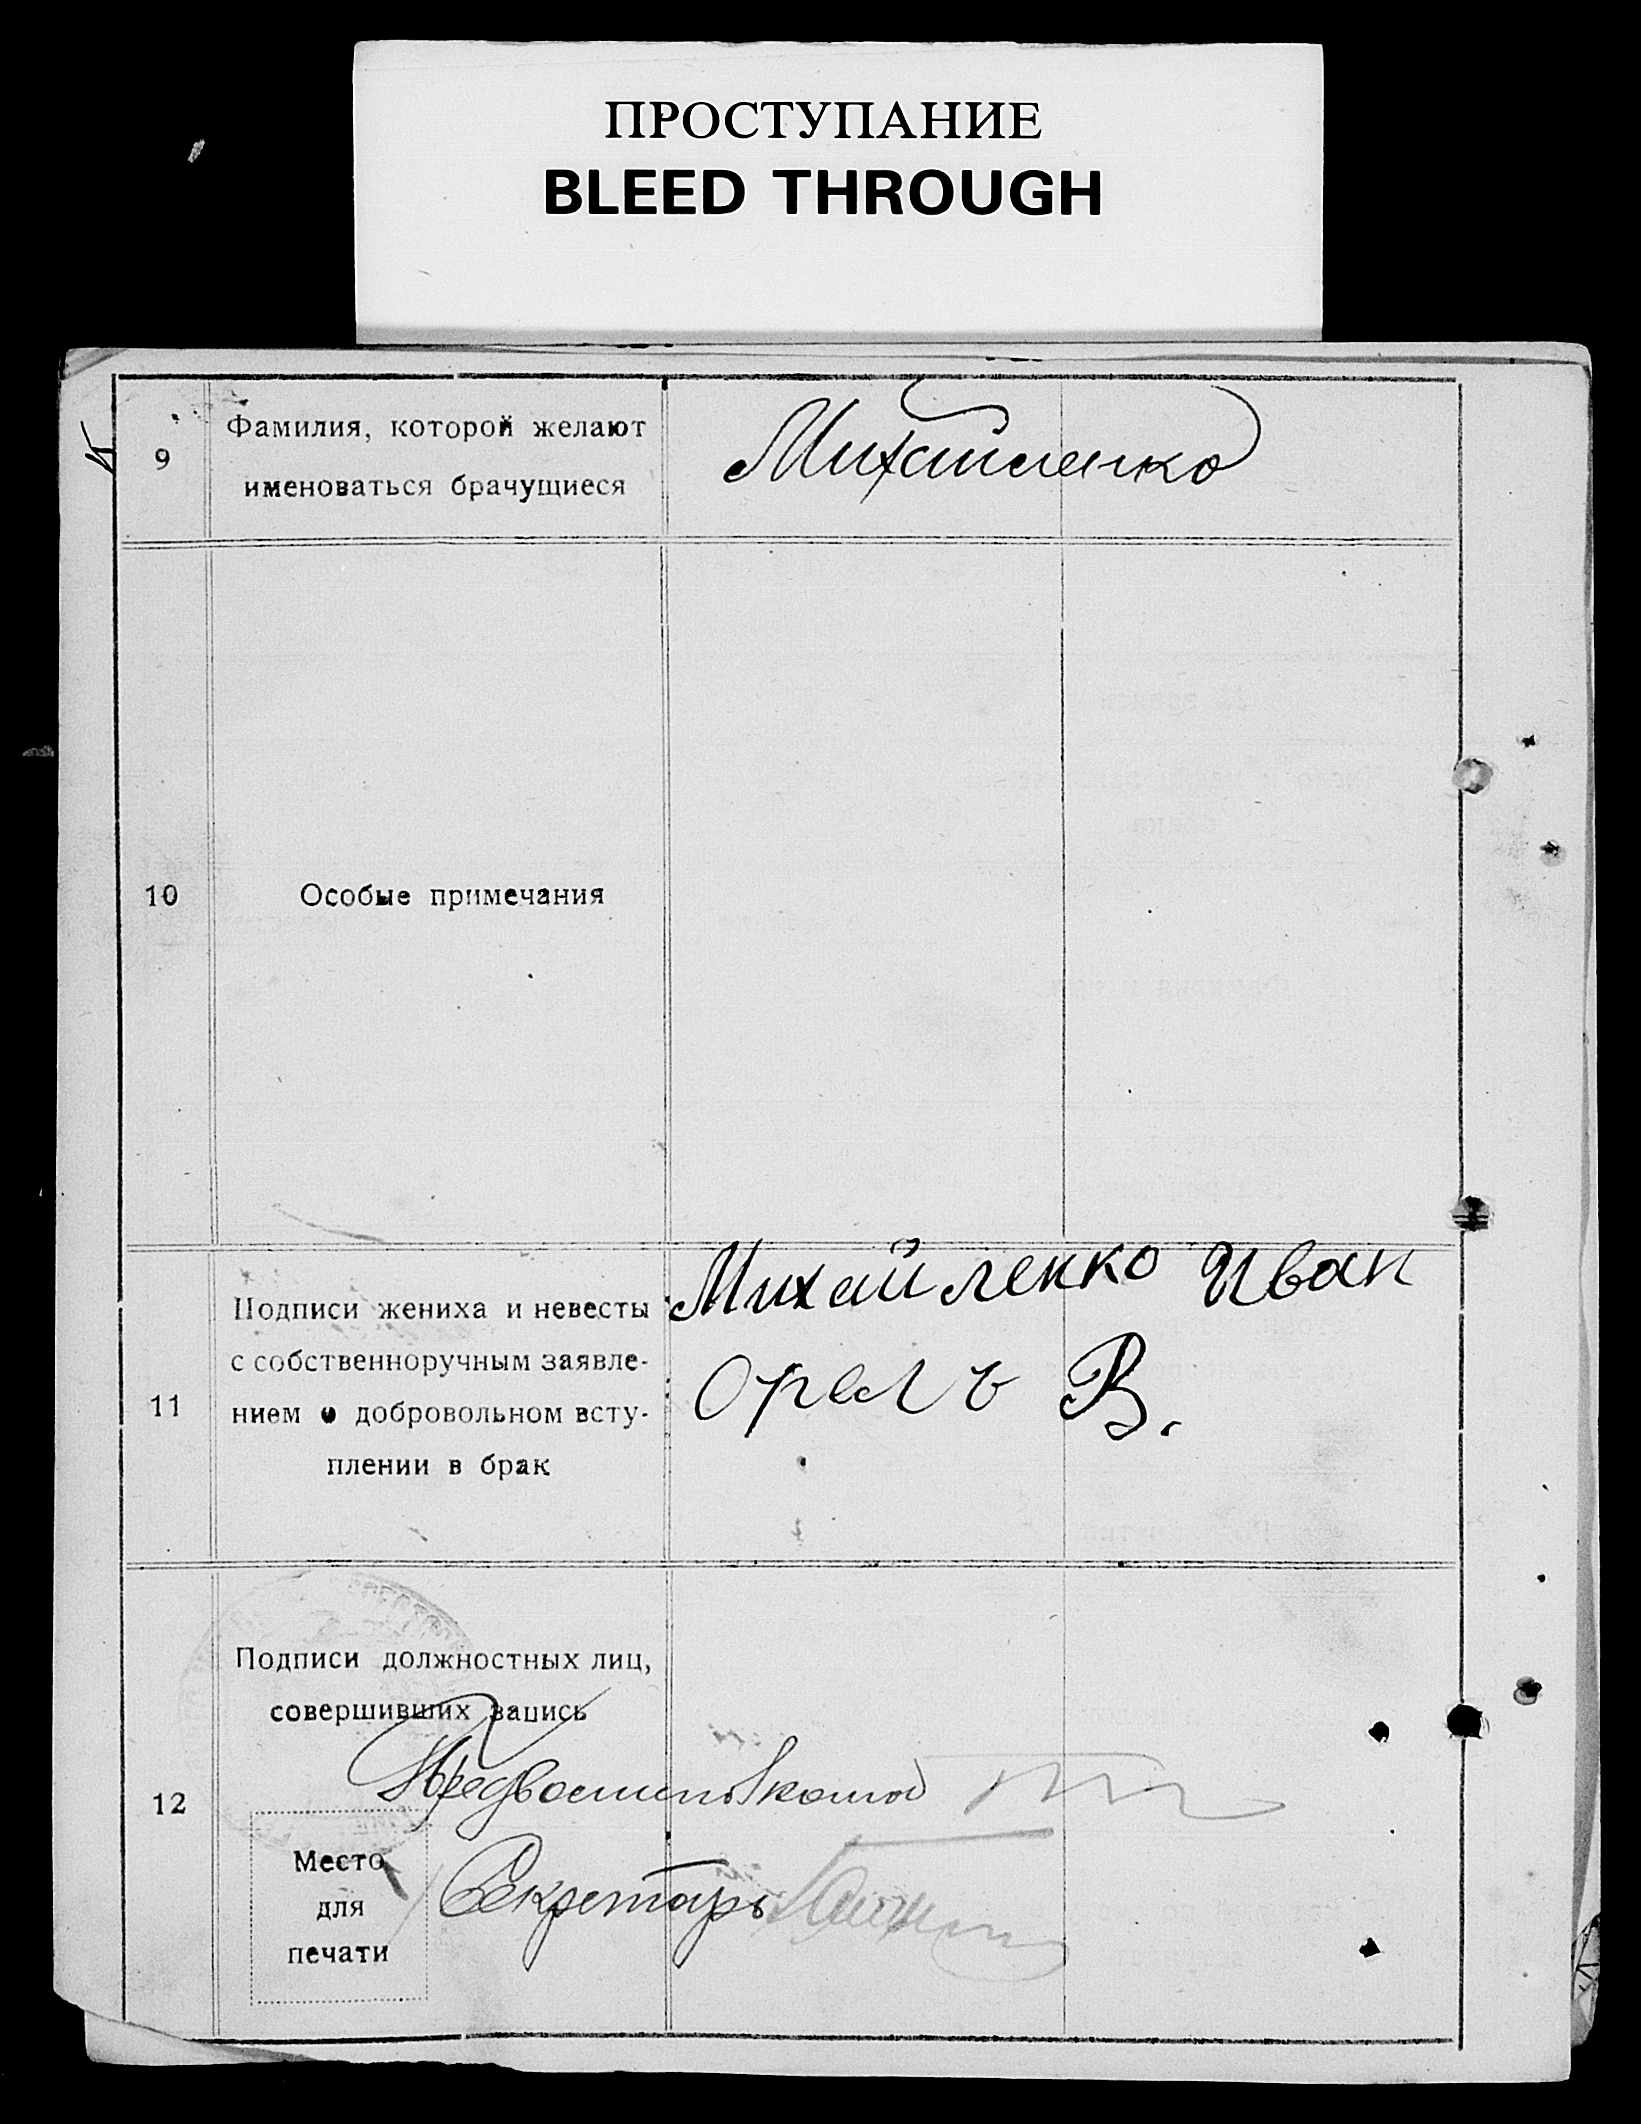 ПРОСТУПАНИЕ
BLEED THROUGH
9
Фамилия, которой желают
именоваться брачущиеся
Михайленко
10
Особые примечания
11
Подписи жениха и невесты
с собственноручным заявле-
нием о добровольном всту-
плении в брак
Михайленко Иван
Орель В.
12
Подписи должностных лиц,
совершивших запись
Секретарь
Место
для
печати